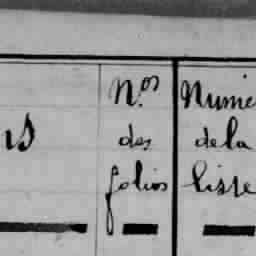 N.os
des
folios
de la
liste